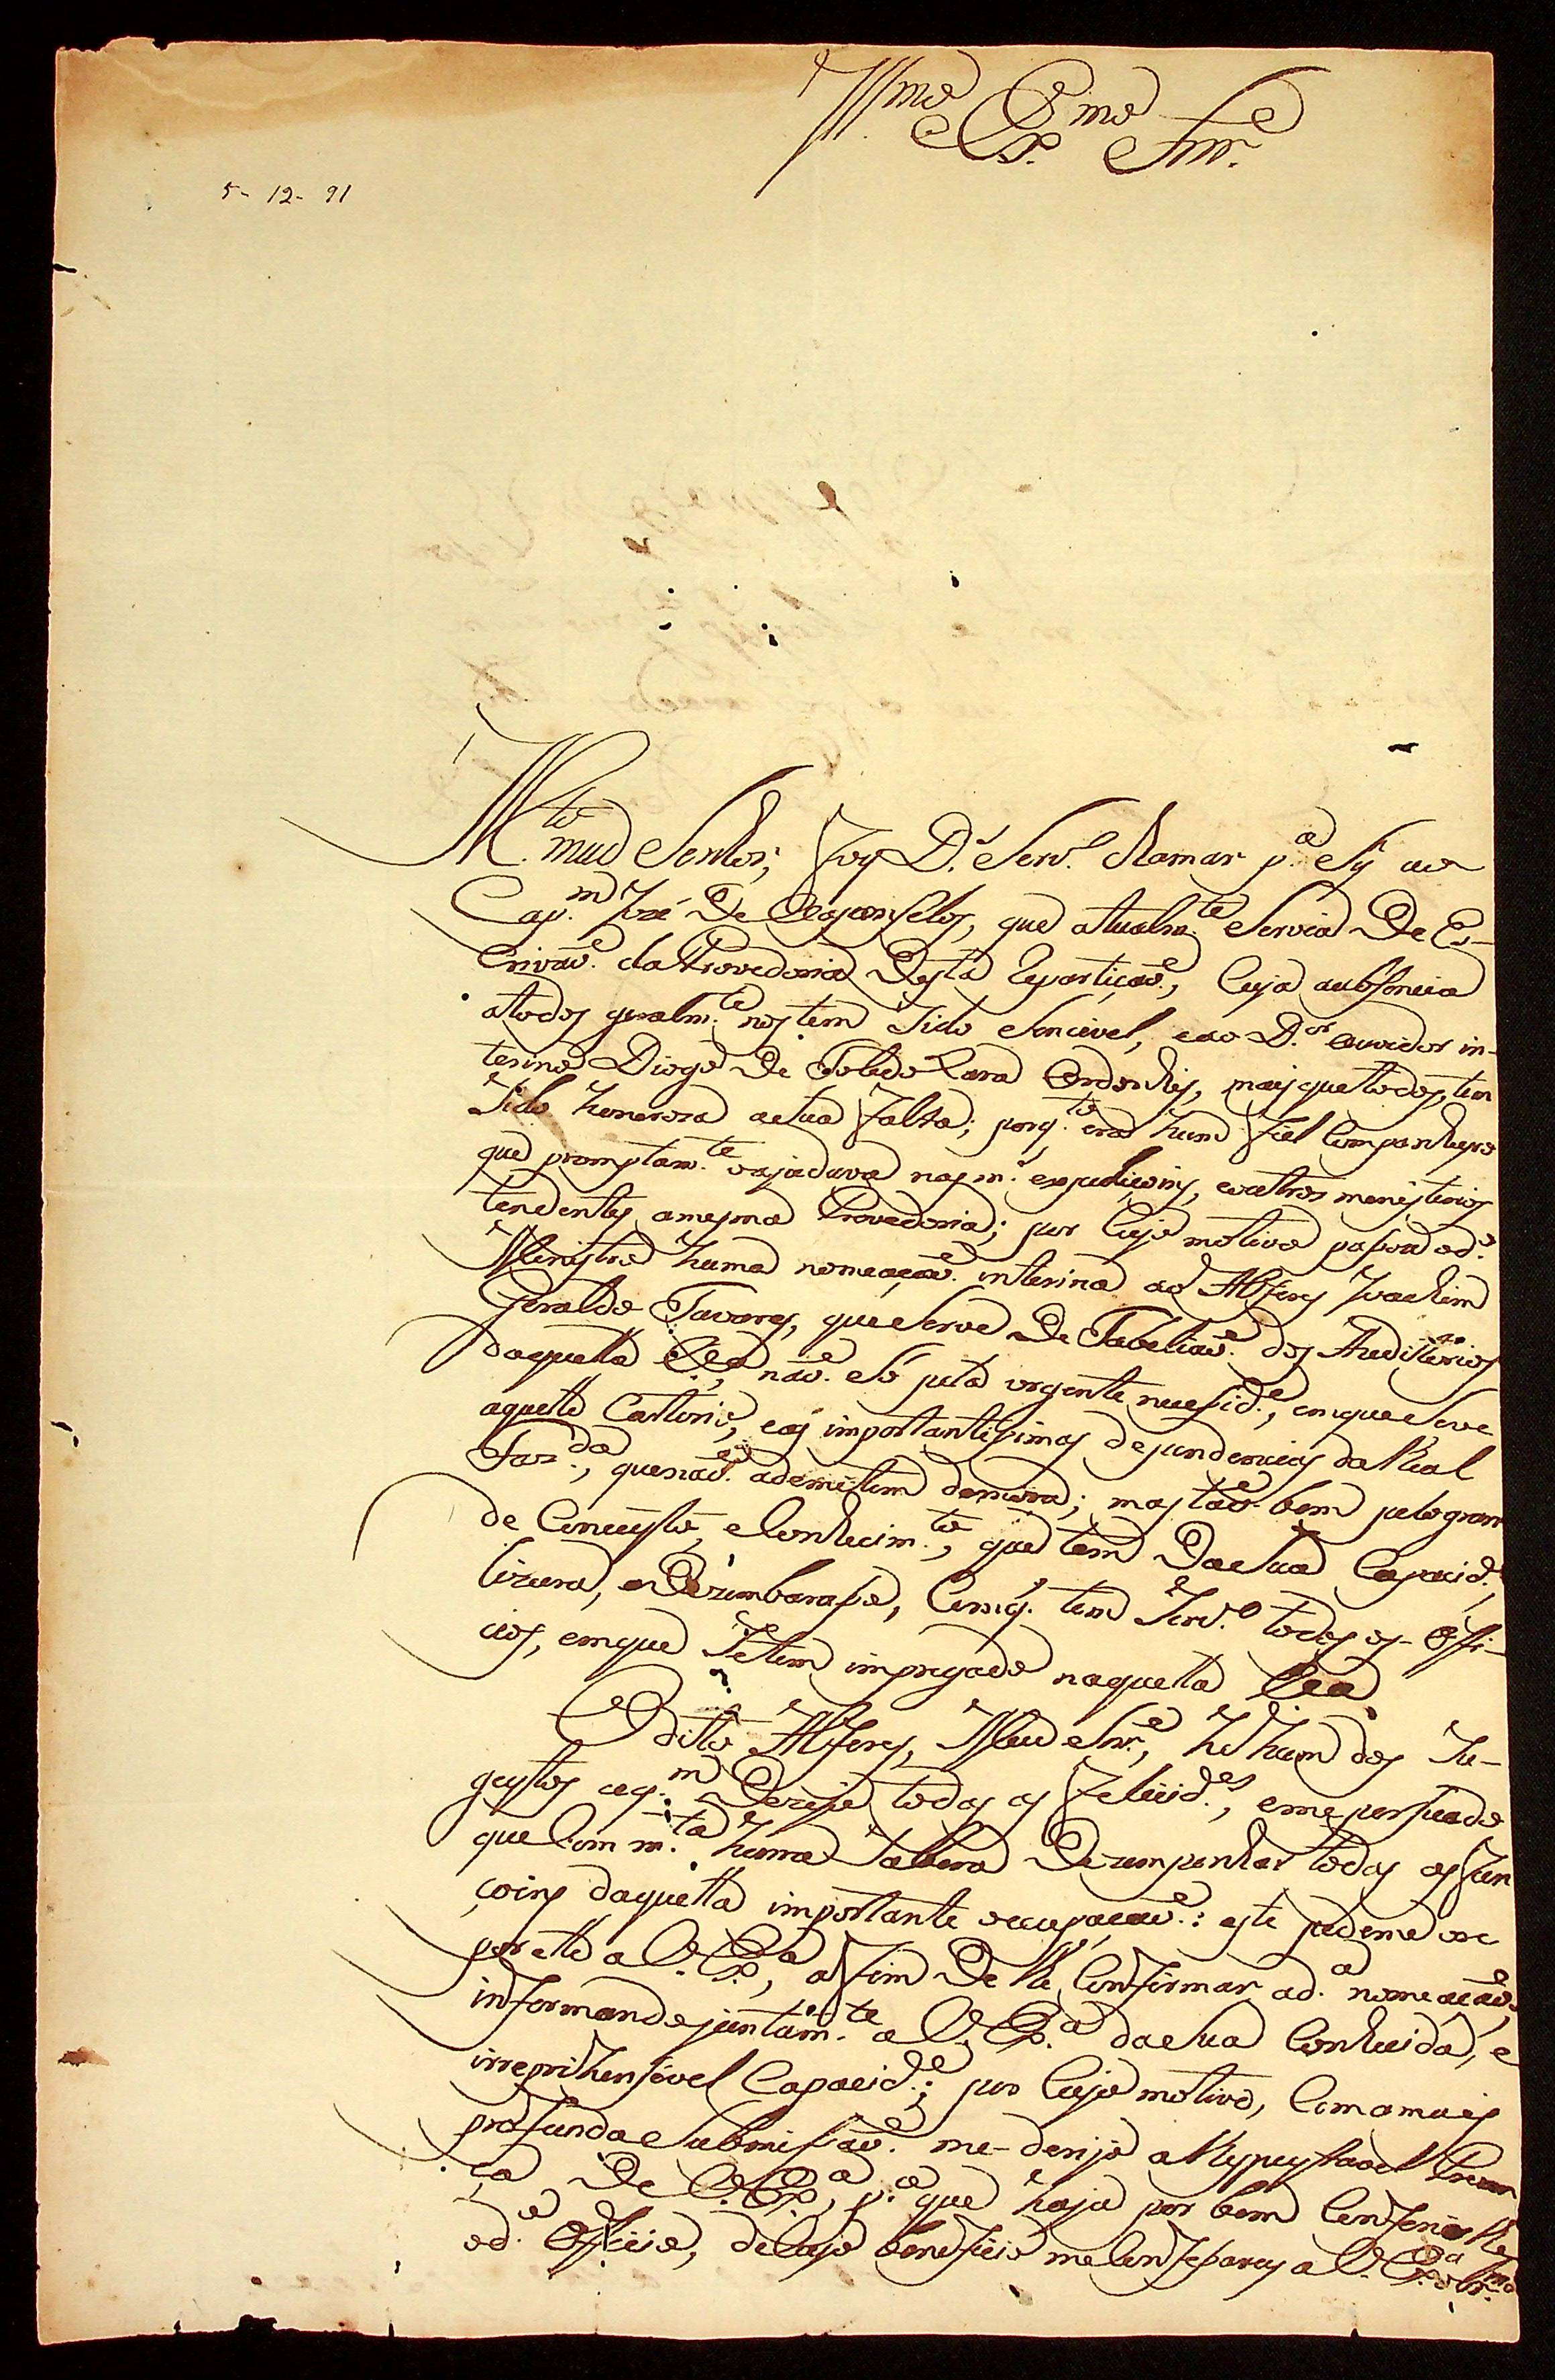 Ill.mo Ex.mo Snr.e
5-12-91
M.to meu Senhor; Foy D.s Serv.o chamar p.a Sy ao
Cap.m José De Vasconsellos, que atualm.te Servia De Es-
crivaõ. da Provedoria Desta Repartiçaõ., Cuja aubsencia
atodos geralm.te nos tem Sido Sencivel, eao D.or ouvidor in-
terino Diogo De Toledo Lara Ordonhes, mais que todos, tem
Sido honeroza aSua Falta; porq.to era hum Fiel Companheyro
que promptam.te o ajudava nas m.s expediçoins, eoutros menisterios
tendentes amesma Provedoria; por Cujo motivo pasou od.o
Menistro huma nomeaçaõ. interina ao Alferes Joachim
Geraldo Tavares, que Serve De Tabeliaõ. dos Auditorios
daquella V.a, naõ. Só pela urgente necesid.e, emque Seve
aquelle Cartorio, eas importantisimas dependencias da Real
Faz.da, quenaõ. ademitem demora; mas taõ. bem pelogran
de Conceysto, eConhecim.to, que tem DaSua Capacid.e,
lizura, eDezembaraso, Comq.' tem Serv.o todos os Offi-
cios, emque Setem impregado naquella V.a
O dito Alferes, Meu Snr.e, he hum dos Su-
geystos aq.m Dezejo todas as Felicid.es, eme persuado
que Com m.ta honra Sabera Dezempenhar todas as Fun
çoins daquella importante ocupaçaõ.: este pedeme ore
por elle a V. Ex.a, a Fim De lhe Confirmar ad.a nomeaçaõ,
informando juntam.te a V. Ex.a daSua Conhecida, e
irreprihensivel Capacid.e; por Cujo motivo, Comamais
profunda Submisaõ. me-derijo aRespeystavel Prezen
ça De V. Ex.a, p.a que haja por bem Conferir lhe
od.o Officio, deCujo beneficio me Confesarey a V. Ex.a